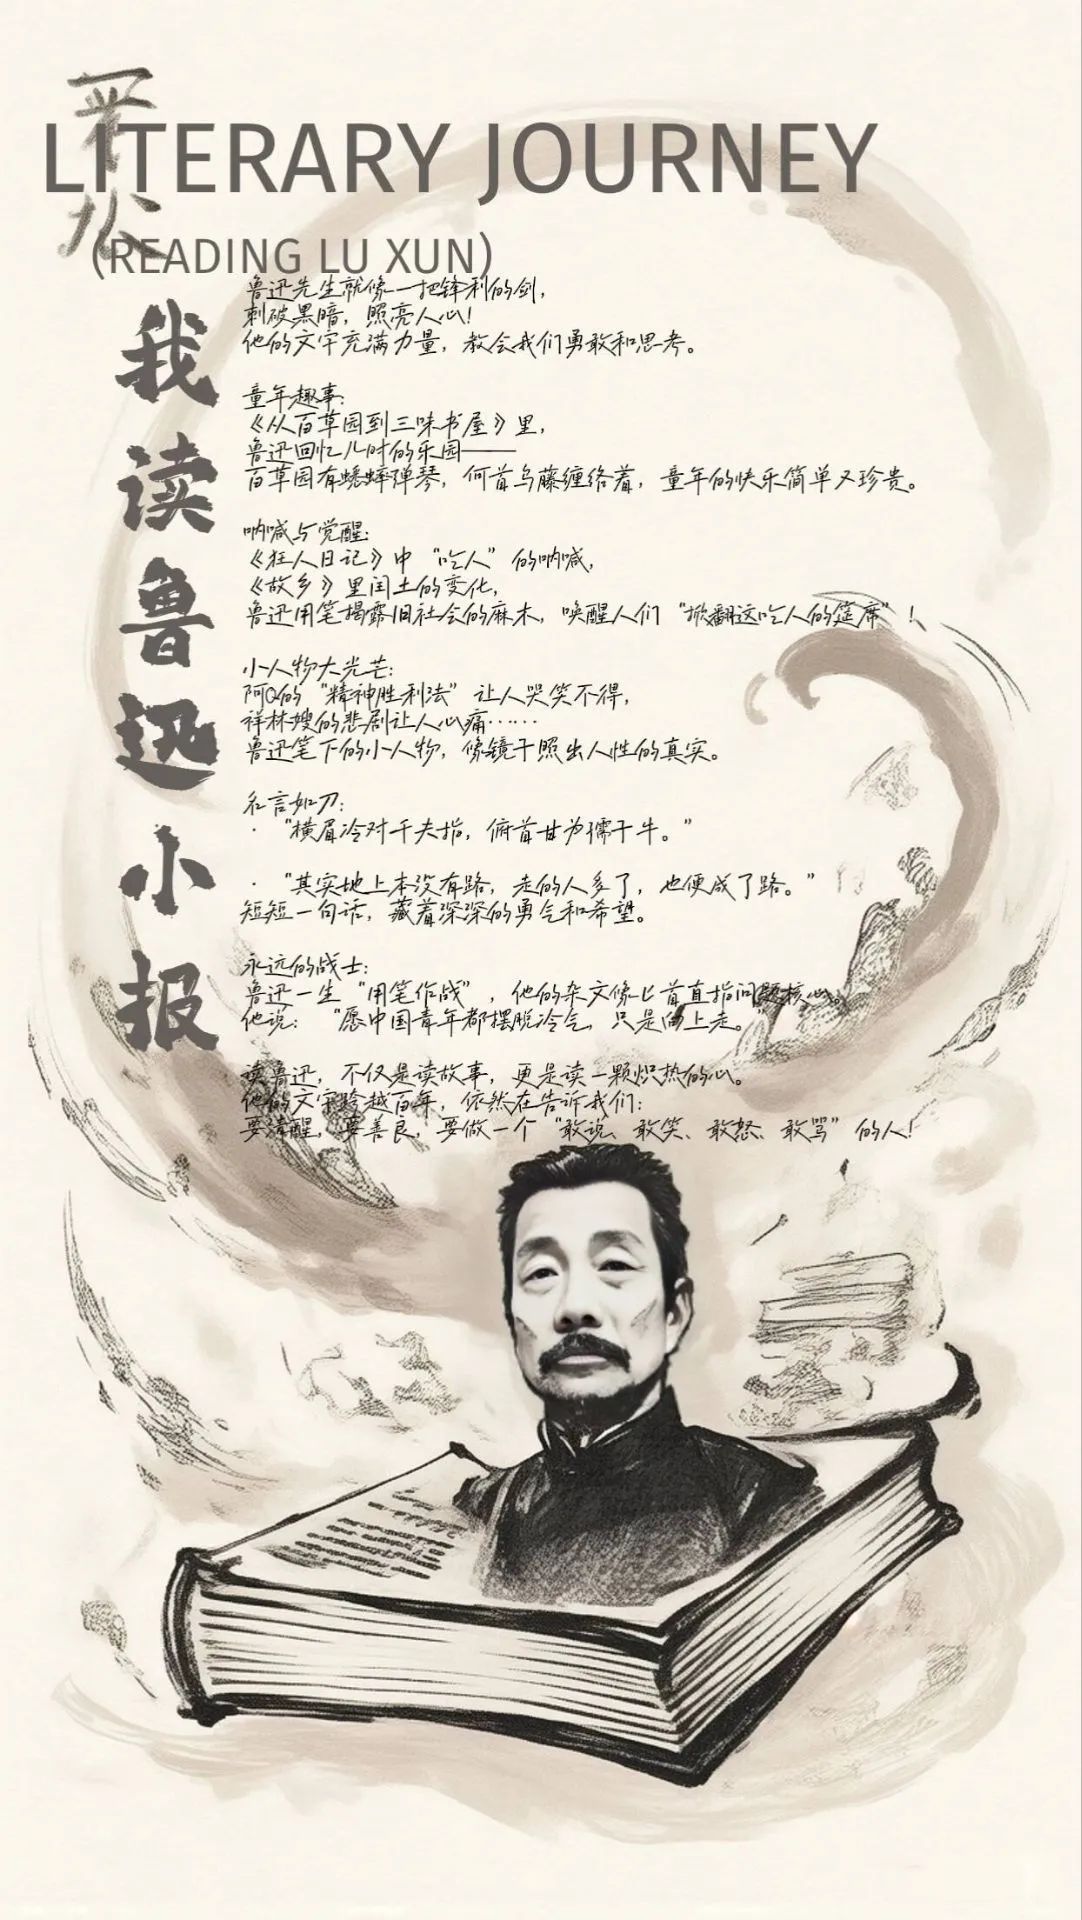 LITERARY JOURNEY
(READING LU XUN)
我读鲁迅小报
鲁迅先生就像一把锋利的剑，
刺破黑暗，照亮人心！
他的文字充满力量，教会我们勇敢和思考。
童年趣事：
《从百草园到三味书屋》里，
鲁迅回忆儿时的乐园——
百草园有蟋蟀弹琴，何首乌藤缠络着，童年的快乐简单又珍贵。
呐喊与觉醒：
《狂人日记》中“吃人”的呐喊，
《故乡》里闰土的变化，
鲁迅用笔揭露旧社会的麻木，唤醒人们“掀翻这吃人的筵席”！
小人物大光芒：
阿Q的“精神胜利法”让人哭笑不得，
祥林嫂的悲剧让人心痛……
鲁迅笔下的小人物，像镜子照出人性的真实。
名言如刀：
· “横眉冷对千夫指，俯首甘为孺子牛。”
· “其实地上本没有路，走的人多了，也便成了路。”
短短一句话，藏着深深的勇气和希望。
永远的战士：
鲁迅一生“用笔作战”，他的杂文像匕首直指问题核心。
他说：“愿中国青年都摆脱冷气，只是向上走。”
读鲁迅，不仅是读故事，更是读一颗炽热的心。
他的文字跨越百年，依然在告诉我们：
要清醒，要善良，要做一个“敢说、敢笑、敢怒、敢骂”的人！